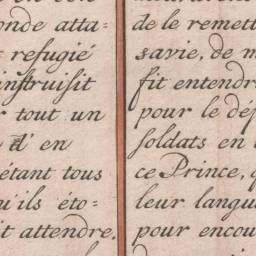 onde atta=
refugié
instruisit
tout un
d' en
étant tous
qu'ils éto-
it attendre.
de le remett
sa vie, de m
fit entendr
pour le dé
soldats en
ce Prince,
leur langu
pour encou